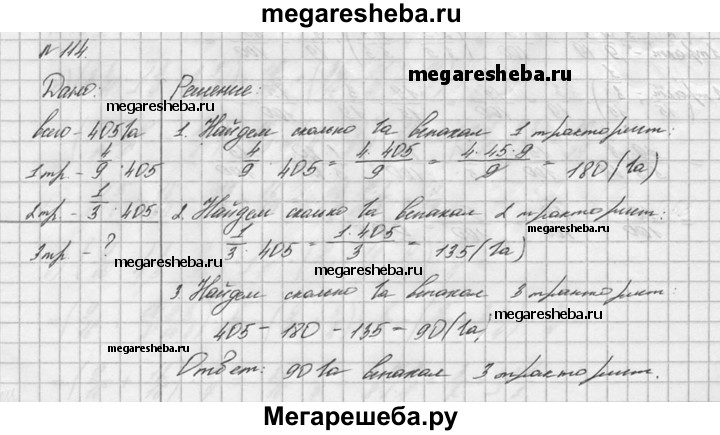 megaresheba.ru
№ 114.
Дано: Решение:
megaresheba.ru
megaresheba.ru
всего - 405 га 1. Найдем сколько га вспахал 1 тракторист:
1 тр. - 4/9 · 405 4/9 · 405 = 4 · 405/9 = 4 · 45 · 9/9 = 180 (га)
megaresheba.ru
megaresheba.ru
2 тр. - 1/3 · 405 2. Найдем сколько га вспахал 2 тракторист:
3 тр. - ? 1/3 · 405 = 1 · 405/3 = 135 (га)
megaresheba.ru
megaresheba.ru
3. Найдем сколько га вспахал 3 тракторист:
405 - 180 - 135 = 90 (га)
megaresheba.ru
megaresheba.ru
Ответ: 90 га вспахал 3 тракторист.
Мегарешеба.ру